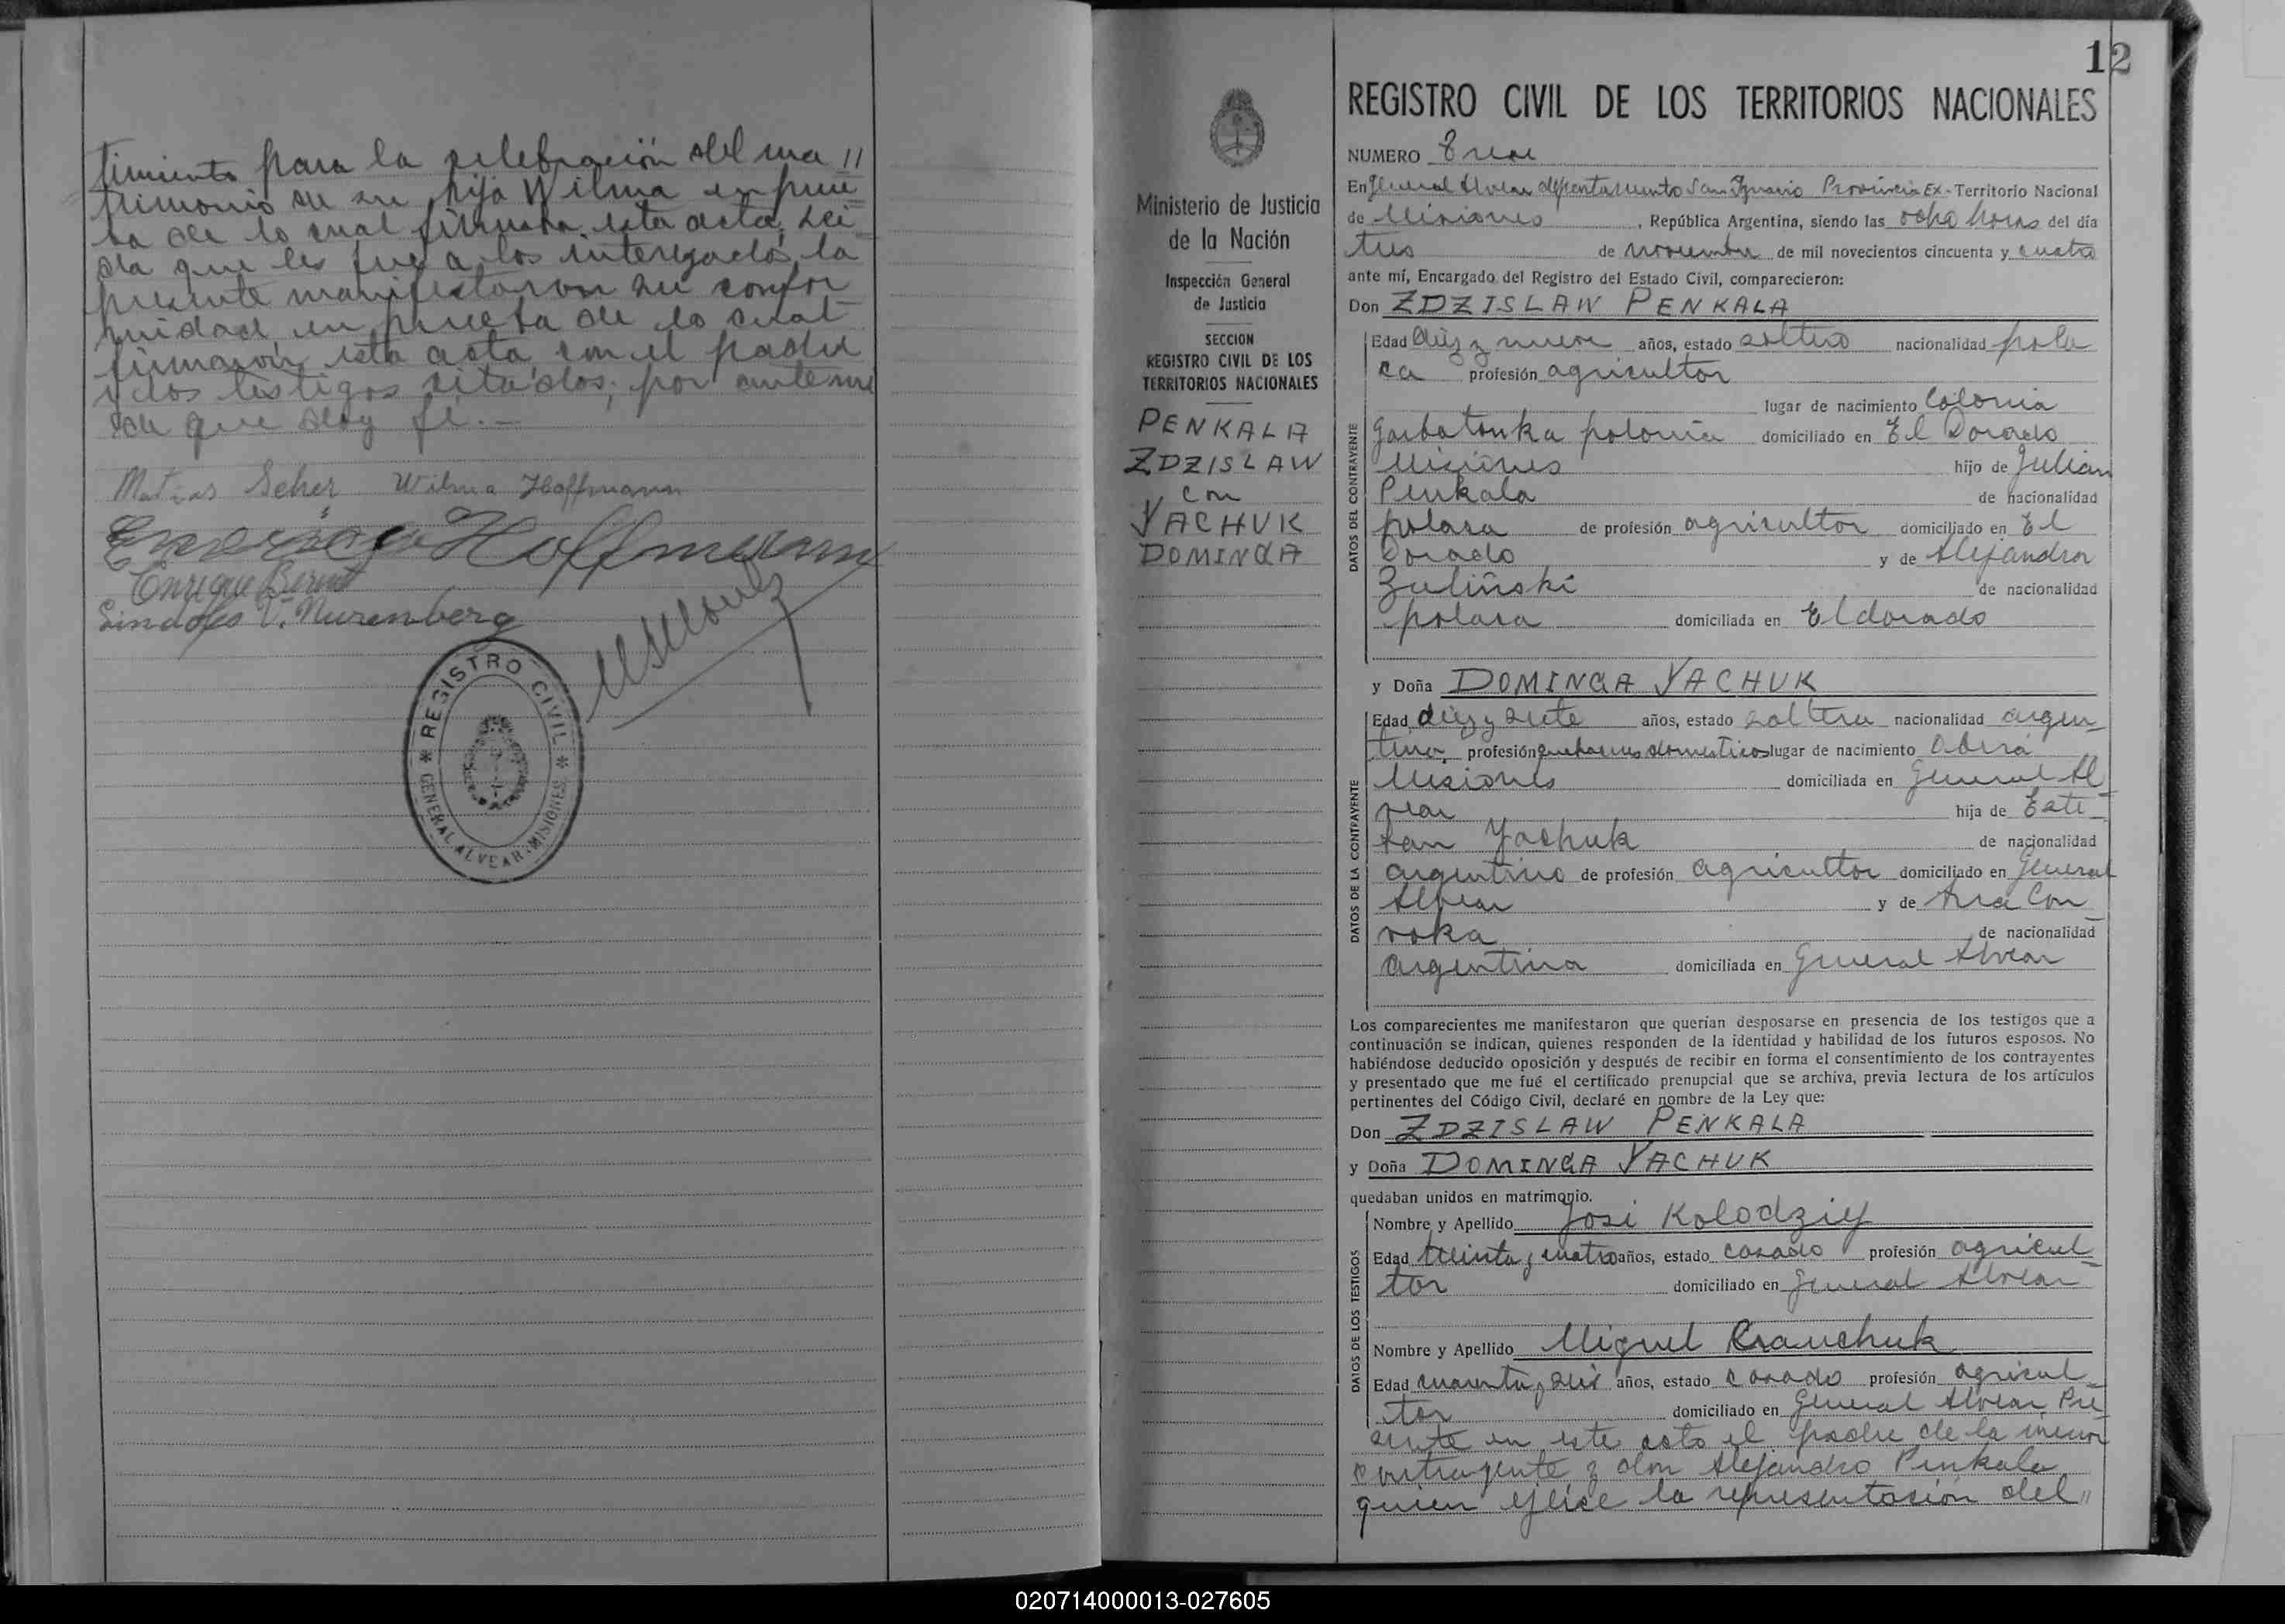 timiento para la celebración del ma //
trimonio de su hija Wilma en prue
ba de lo cual firmara esta acta. Lei
da que les fue a los interezados la
presente manifestaron su confor
midad en prueba de lo cual
firmaron esta acta con el padre
y los testigos citados, por ante mi
de que doy fé.—
Matias Scher Wilma Hoffmann
Hoffmann
Enrique Bernt
V. Nurenberg
* REGISTRO CIVIL *
GENERAL ALVEAR · MISIONES
12
Ministerio de Justicia
de la Nación
Inspección General
de Justicia
SECCION
REGISTRO CIVIL DE LOS
TERRITORIOS NACIONALES
PENKALA
ZDZISLAW
con
YACHUK
DOMINGA
REGISTRO CIVIL DE LOS TERRITORIOS NACIONALES
NUMERO
En General Alvear departamento San Ignacio Provincia Ex-Territorio Nacional
de Misiones, República Argentina, siendo las ocho horas del día
tres de noviembre de mil novecientos cincuenta y cuatro
ante mí, Encargado del Registro del Estado Civil, comparecieron:
Don ZDZISLAW PENKALA
DATOS DEL CONTRAYENTE
Edad diez y nueve años, estado soltero nacionalidad pola
ca profesión agricultor
lugar de nacimiento Colonia
Garbatonka polonia domiciliado en El Dorado
Misiones hijo de Julian
Penkala de nacionalidad
polaca de profesión agricultor domiciliado en El
Dorado y de Alejandra
Zulinski de nacionalidad
polaca domiciliada en Eldorado
y Doña DOMINGA YACHUK
DATOS DE LA CONTRAYENTE
Edad diez y siete años, estado soltera nacionalidad argen-
tina profesión quehaceres domesticos lugar de nacimiento Oberá
Misiones domiciliada en General Al-
vear hija de Este-
ban Yachuk de nacionalidad
argentino de profesión agricultor domiciliado en General
Alvear y de Ana Con-
roka de nacionalidad
argentina domiciliada en General Alvear
Los comparecientes me manifestaron que querían desposarse en presencia de los testigos que a
continuación se indican, quienes responden de la identidad y habilidad de los futuros esposos. No
habiéndose deducido oposición y después de recibir en forma el consentimiento de los contrayentes
y presentado que me fué el certificado prenupcial que se archiva, previa lectura de los artículos
pertinentes del Código Civil, declaré en nombre de la Ley que:
Don ZDZISLAW PENKALA
y Doña DOMINGA YACHUK
quedaban unidos en matrimonio.
DATOS DE LOS TESTIGOS
Nombre y Apellido José Kolodziej
Edad treinta y cuatro años, estado casado profesión agricul-
tor domiciliado en General Alvear
Nombre y Apellido Miguel Krauchuk
Edad cuarenta y seis años, estado casado profesión agricul-
tor domiciliado en General Alvear. Pre-
sente en este acto el padre de la menor
contrayente y don Alejandro Penkala
quien ejerce la representación del //
020714000013-027605